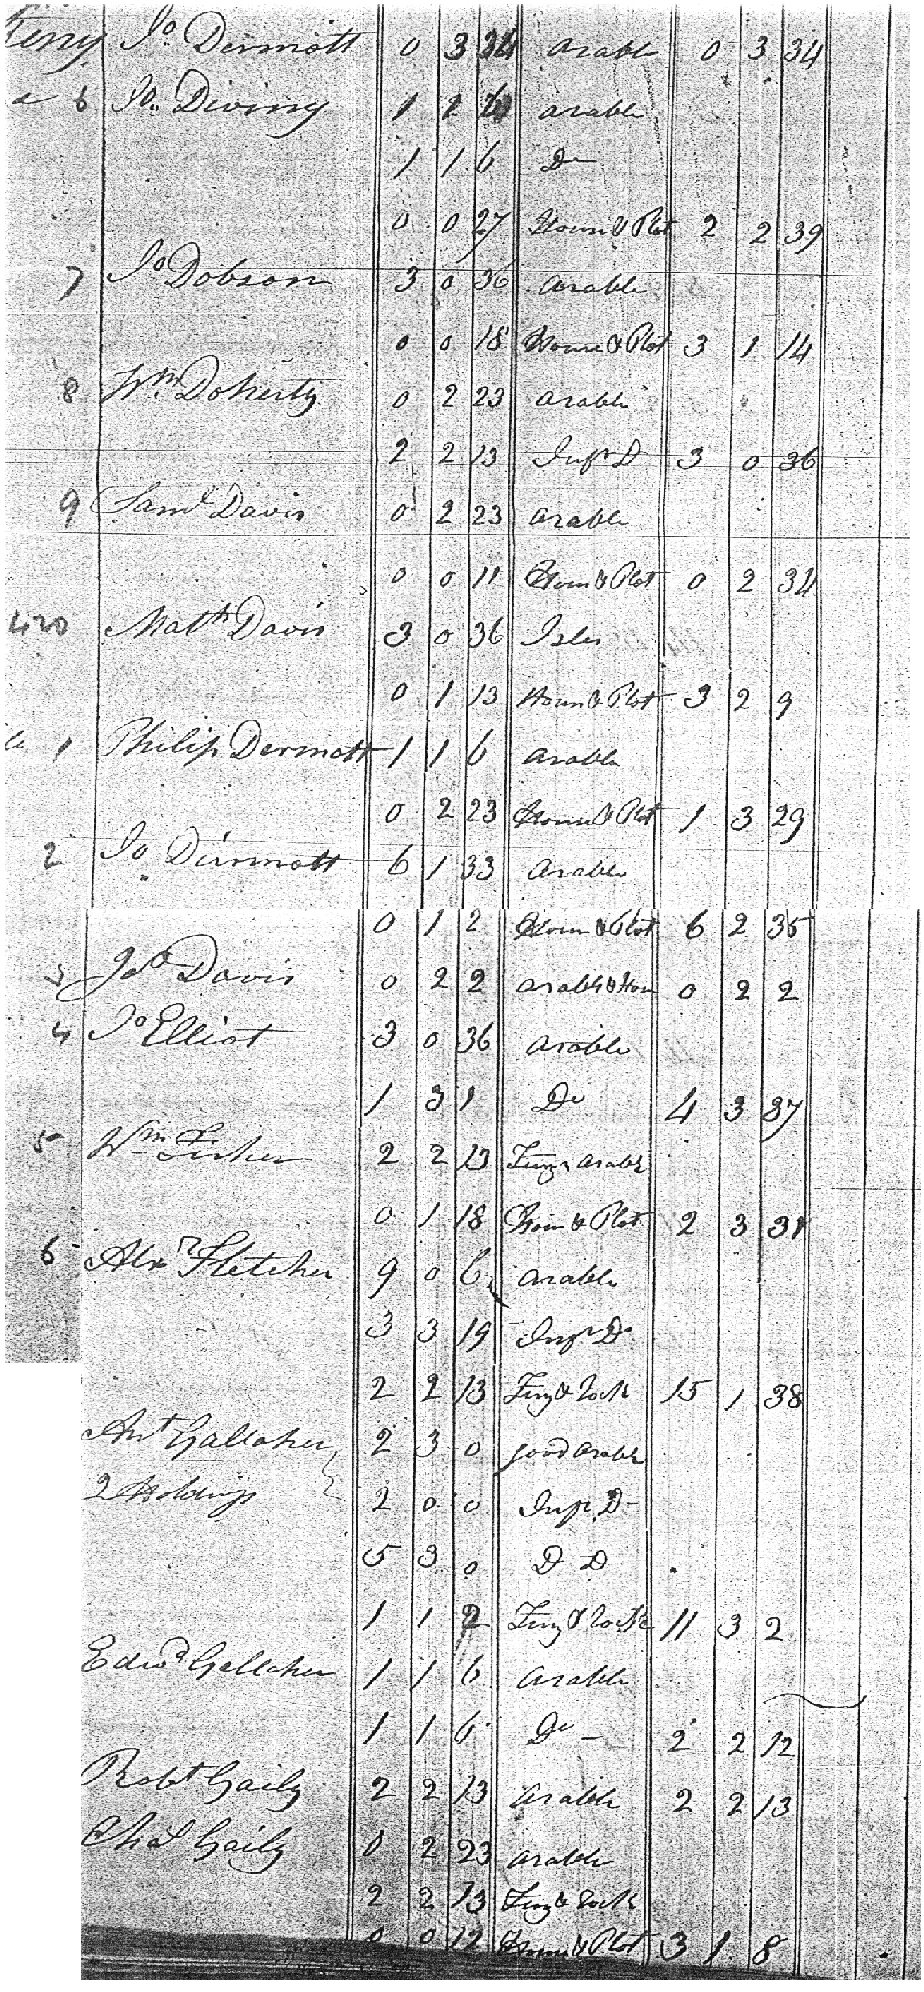 Jo Dermott 0 3 34 arable 0 3 34
6 Jo. Diviny 1 2 arable
1 1 6 Do
0 0 27 House & Plot 2 2 39
7 Jo Dobson 3 0 36 arable
0 0 18 House & Plot 3 1 14
8 Wm Doherty 0 2 23 arable
2 2 13 Infr D 3 0 36
9 Saml Davis 0 2 23 arable
0 0 11 House & Plot 0 2 34
420 Matth Davis 3 0 36 Isles
0 1 13 House & Plot 3 2 9
1 Philip Dermott 1 1 6 arable
0 2 23 House & Plot 1 3 29
2 Jo Dermott 6 1 33 Arable
0 1 2 House & Plot 6 2 35
3 Jas Davis 0 2 2 arable & Hou 0 2 2
4 Jo Elliot 3 0 36 arable
1 3 1 Do 4 3 37
5 Wm Fisher 2 2 13 arable
0 1 18 House & Plot 2 3 31
6 Alexr Fletcher 9 0 6 arable
3 3 19 Infr Do
2 2 13 & rock 15 1 38
Ant Gallaher 2 3 0 good arable
2 Holdings 2 0 0 Infr. D
5 3 0 D D
1 1 2 & rock 11 3 2
Edwd Gallaher 1 1 6 arable
1 1 6 Do 2 2 12
Robt Gaily 2 2 13 arable 2 2 13
Chas Gaily 0 2 23 arable
2 2 13 & rock
0 0 12 House & Plot 3 1 8